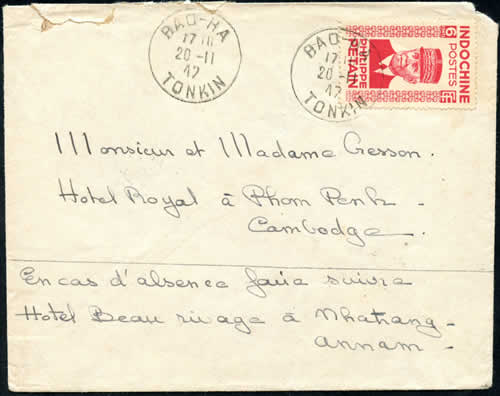 BAO-HA
17 H
20 -11
42
TONKIN
BAO-HA
17 H
20 -11
42
TONKIN
INDOCHINE
POSTES
6
PHILIPPE
PETAIN
Monsieur et Madame Gesson.
Hotel Royal à Phom Penh -
Cambodge.
En cas d'absence faire suivre
Hotel Beau rivage à Nhatrang -
Annam -